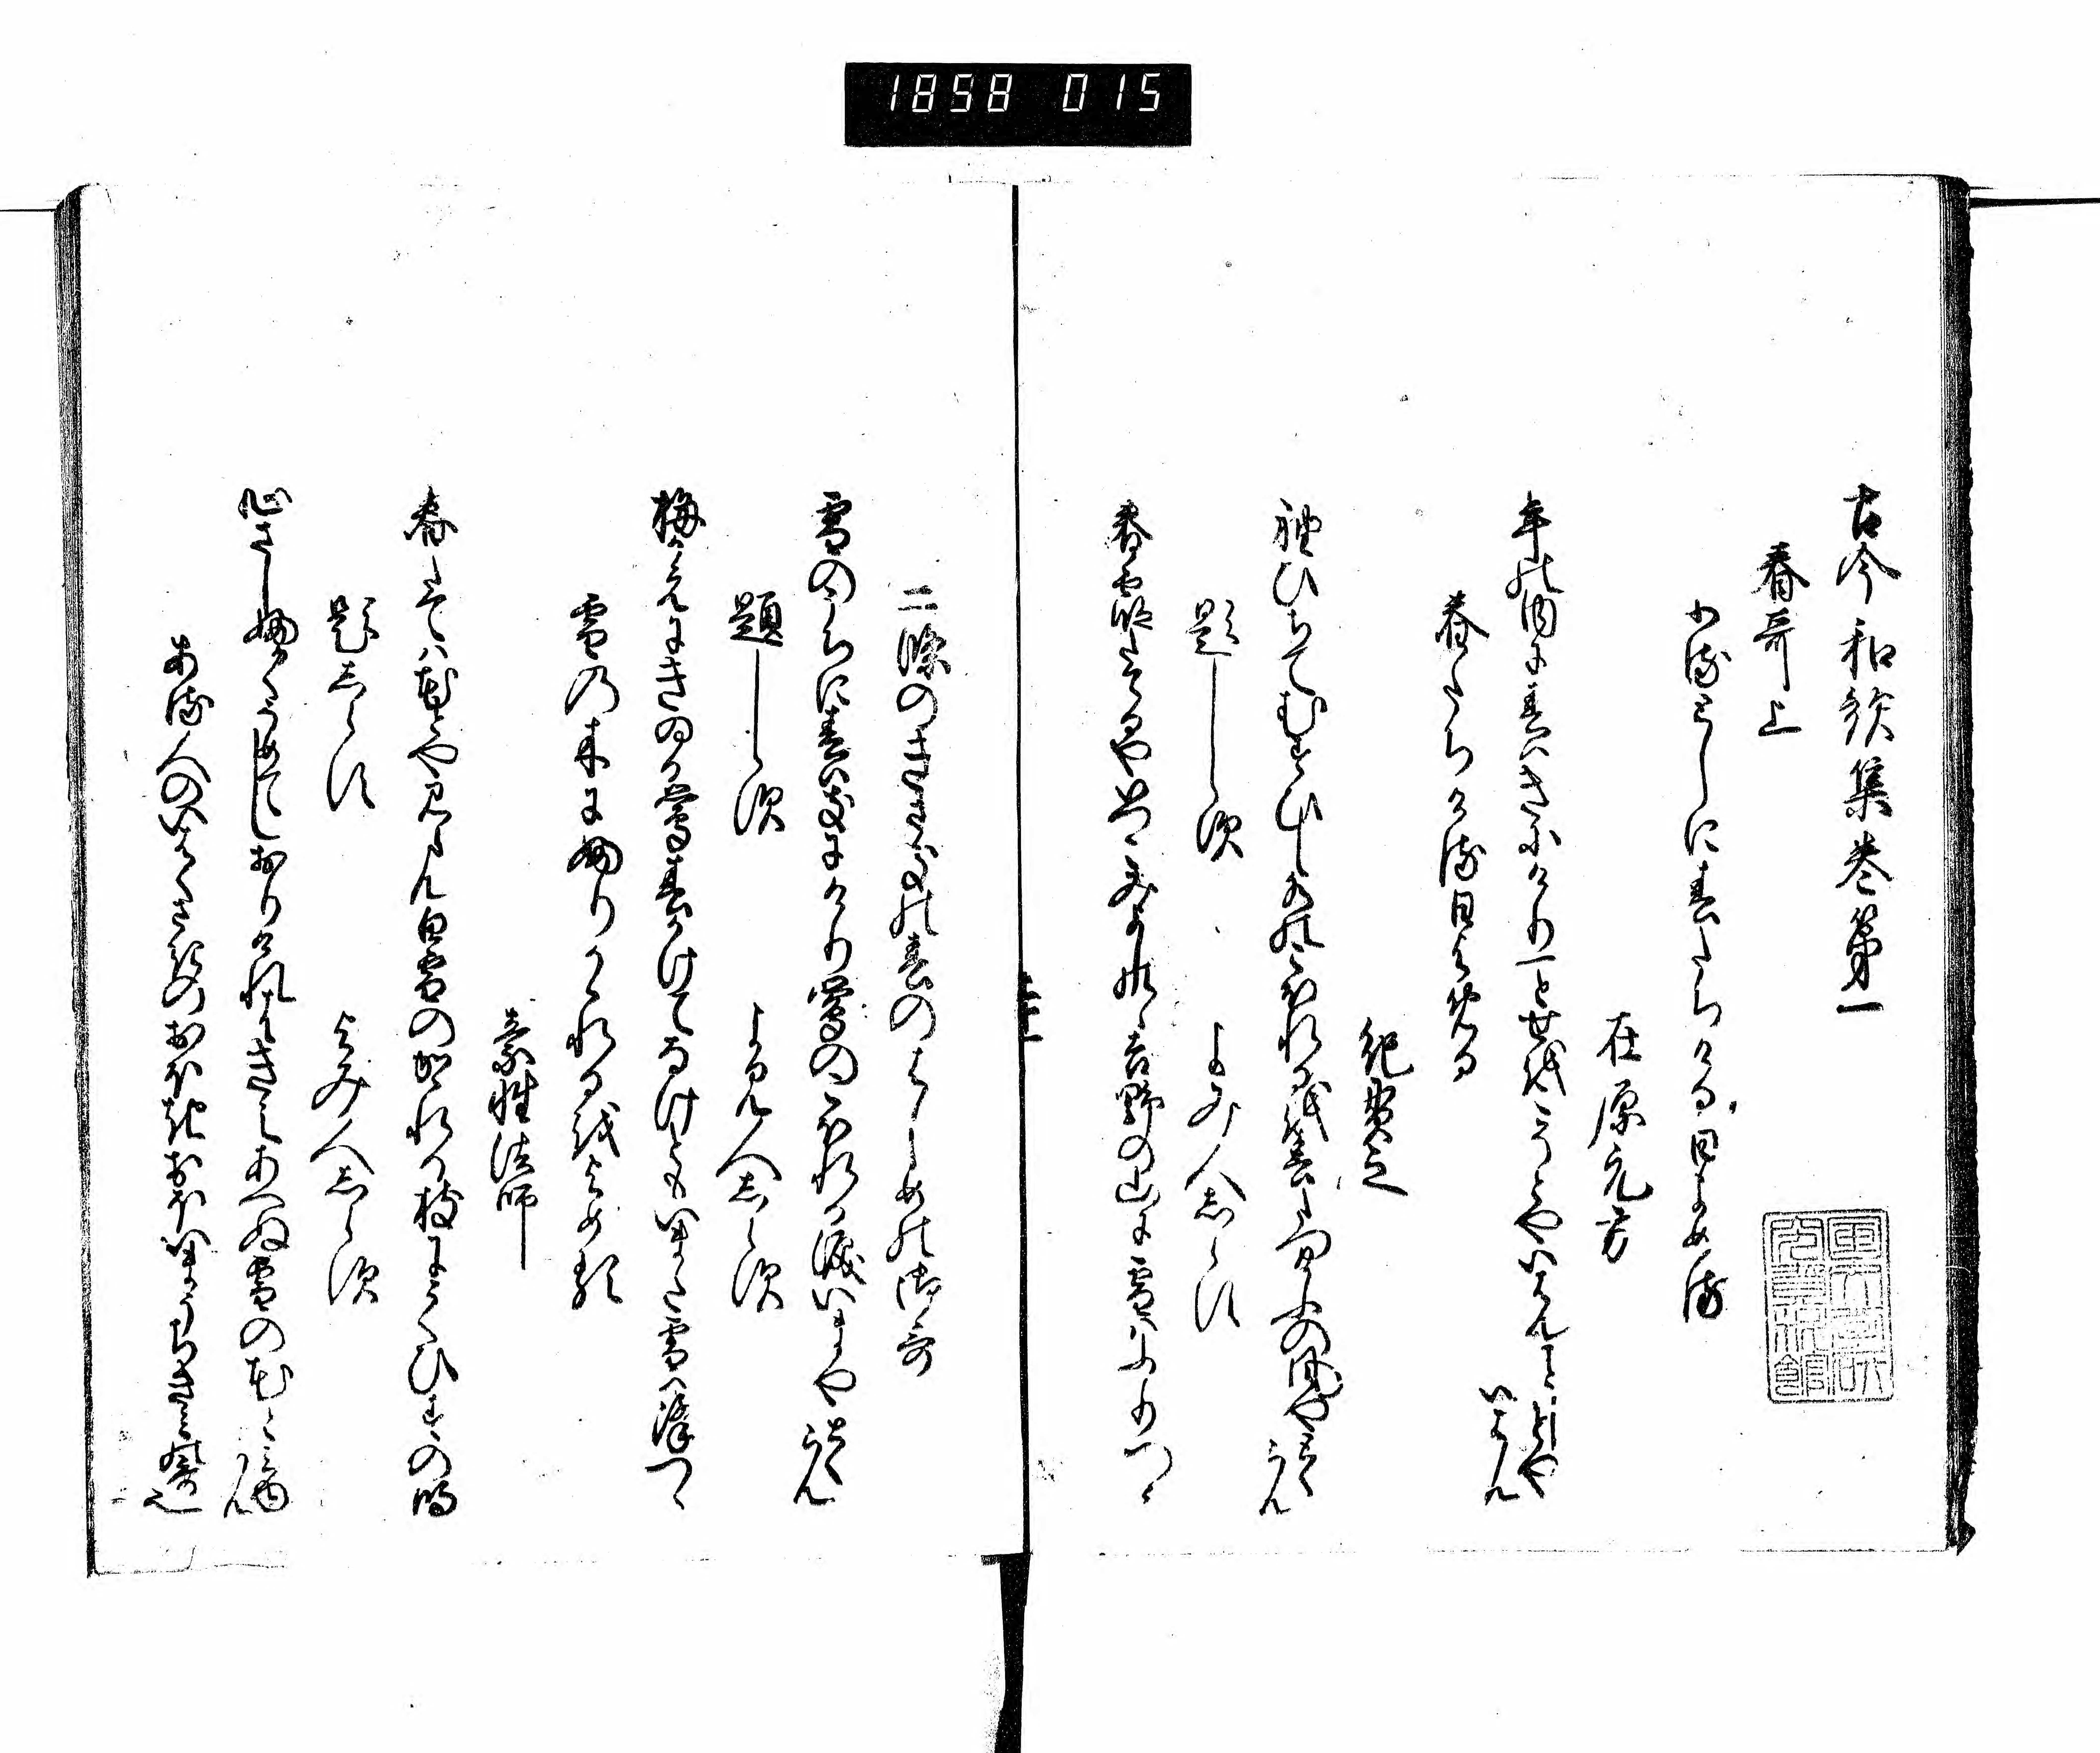 1858 015
古今和哥集巻第一
春哥上
ふるとしに春たちける日よめる
在原元方
年の内に春はきにけり一とせをこそとやいはんことしとや
いはん
春たちける日よめる
紀貫之
袖ひちてむすひし水のこほれるを春たつけふの風やとく
らん
題しらす
よみ人しらす
春霞たてるやいつこみよしのゝ吉野の山に雪はふりつゝ
二條のきさきの春のはしめの御哥
雪のうちに春はきにけり鶯のこほれる涙いまや とく
らん
題しらす
よみ人しらす
梅かえにきゐる鶯春かけてなけともいまた雪は降つゝ
雪の木にふりかゝれるをよめる
素性法師
春たては花とや見らん白雪のかゝれる枝にうくひすの鳴
題しらす
よみ人しらす
心さしふかくそめてしおりけれはきえあへぬ雪の花と
みゆ
らん
ある人のいはくさきのおほきおほいまうちきみの哥也